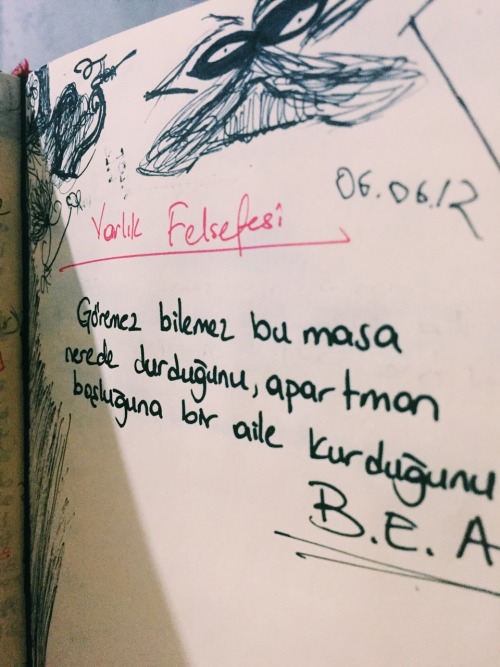 06.06.12
Varlık Felsefesi
Göremez bilemez bu masa
nerede durduğunu, apartman
boşluğuna bir aile kurduğunu
B.E.A